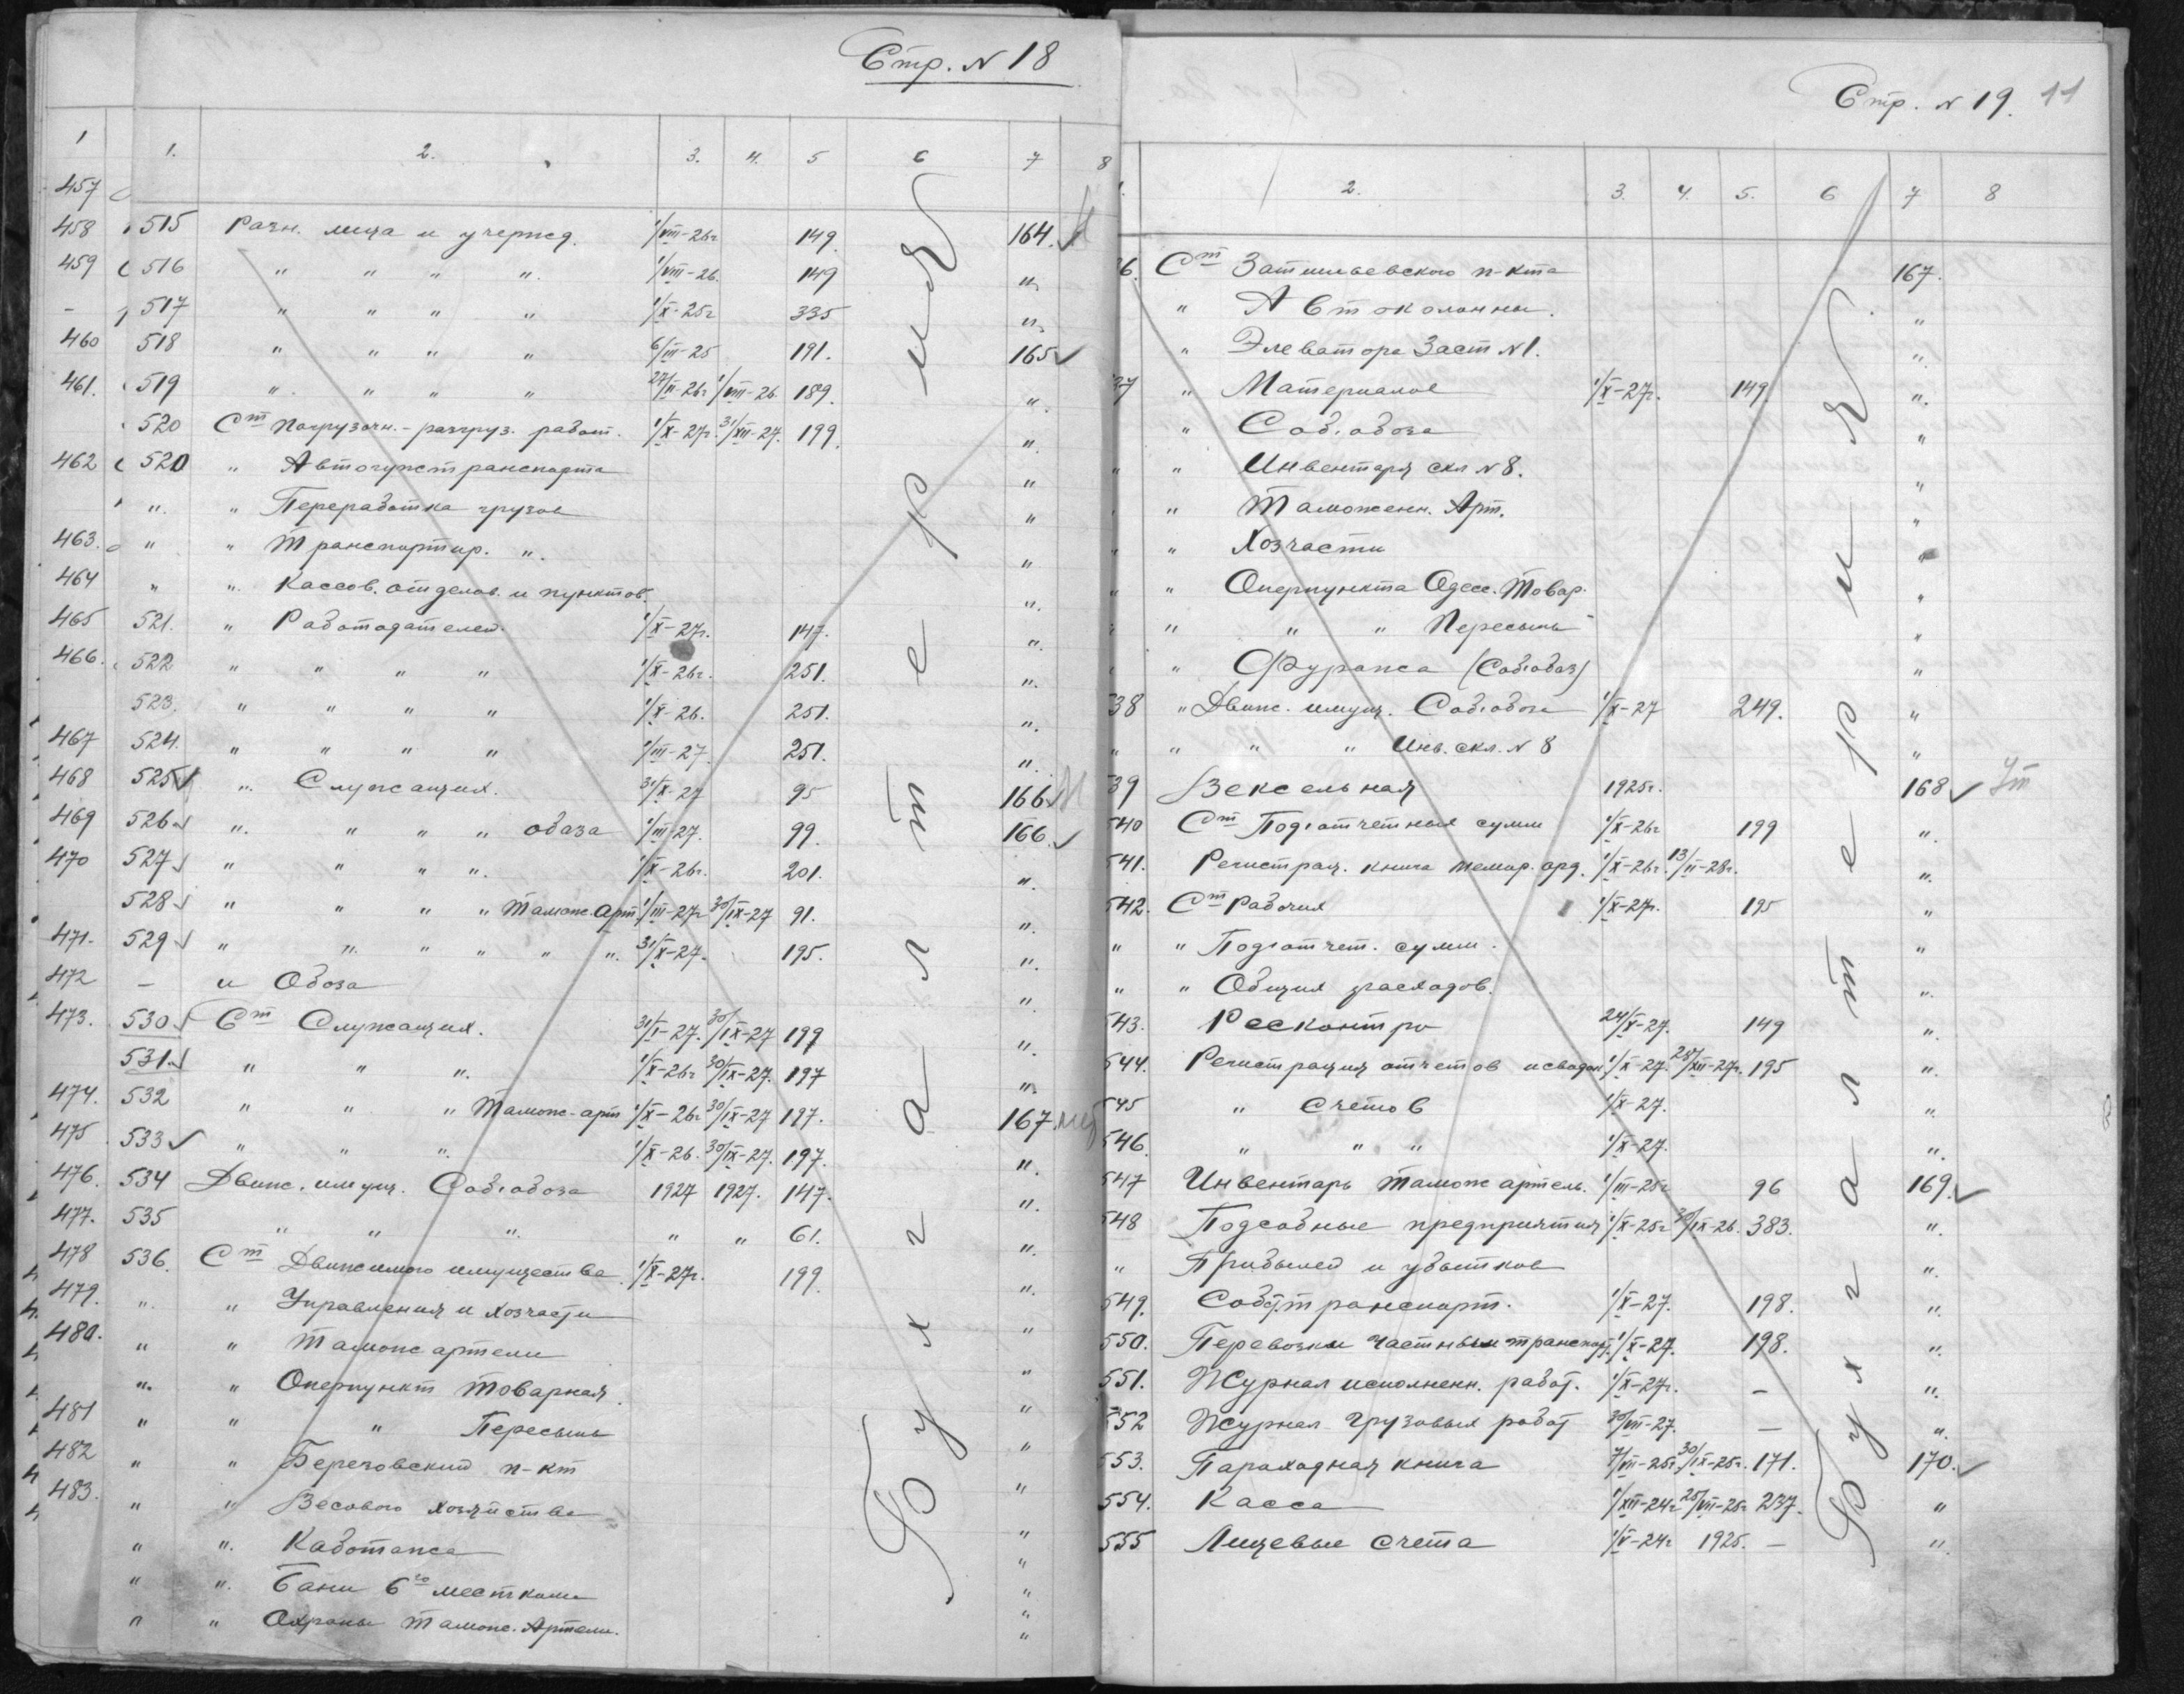 Стр. № 18
1 1. 2. 3. 4. 5 6 7 8
457
458 515 Разн. лица и учержд. 1/VIII-26г 149. 164.
459 516 " " " ". 1/VIII-26. 149 "
- 517 " " " " 1/X-25г 335 "
460 518 " " " " 6/III-25 191. 165
461. 519 " " " " 27/II-26г 1/VIII-26 189. "
520 Ст Погрузочн.-разгруз. работ. 1/X-27г. 31/XII-27. 199. "
462 520 " Автогужтранспорта "
". " Переработка грузов "
463. " " Транспортир. ". "
464 " ". Кассов. отделов. и пунктов. ".
465 521. " Работодателей. 1/X-27г. 147. ".
466. 522 " " " " 1/X-26г. 251. ".
523. " " " " 1/X-26. 251. ".
467 524. " " " " 1/III-27. 251. ".
468 525 ". Служащих. 31/X-27 95 166
469 526 ". " " " обоза 1/III-27. 99. 166.
470 527 " " " ". 1/X-26г. 201. ".
528 " " " " Тамож. Арт 1/III-27г 30/IX-27 91. ".
471. 529 " ". " " " ". 31/X-27. 195. ".
472 - и Обоза "
473. 530 Ст Служащих. 31/I-27. 30/IX-27 199 ".
531. " " ". 1/X-26г 30/IX-27. 197 "
474. 532 " " " Тамож-арт 1/X-26г 30/IX-27 197. 167.
475 533 " " ". 1/X-26. 30/IX-27. 197. ".
476. 534 Движ. имущ. Соб. обоза 1927 1927. 147. ".
477. 535 " " ". " " 61. ".
478 536. Ст Движимого имущества 1/X-27г. 199. ".
479. ". " Управления и хозчасти "
480. " " Тамож артели "
". " Оперпункт Товарная. "
481 " " " Пересыпь "
482 " " Березовский п-кт "
483. " " Весового хозяйства "
" ". Каботажа "
" ". Бани 6го месткома "
" " Охраны Тамож. Артели. "
Бухгалтерия
Стр. № 19. 11
2. 3. 4. 5. 6 7 8
36. Ст Затишьевского п-кта 167.
" Автоколонны. "
" Элеватора Заст №1. "
37 " Материалов 1/X-27г. 149 ".
" Соб. обоза "
" " Инвентаря скл №8. "
" Таможенн. Арт. "
" " Хозчасти "
" " Оперпункта Одесс. Товар. "
" " " Пересыпь "
" " Фуража (Соб. обоз) "
38 " Движ. имущ. Соб. обоза 1/X-27 249. "
" " " " Инв. скл. № 8 "
539 Вексельная 1925г. 168
540 Ст Подотчетных сумм 1/X-26г 199 ".
541. Регистрац. книга мемор. орд. 1/X-26г. 13/II-28г. ".
542. Ст Рабочих 1/X-27г. 195 "
" " Подотчет. сумм. "
" " Общих расходов. ".
543. Ресконтро 24/X-27. 149 ".
544. Регистрация отчетов и сводок 1/X-27. 28/XII-27г. 195 ".
545 " Счетов 1/X-27. ".
546. " " " 1/X-27. ".
547 Инвентарь Тамож артель. 1/III-25г 96 169.
548 Подсобные предприятия 1/X-25г 30/IX-26. 383. ".
" Прибылей и убытков ".
549. Собст. транспорт. 1/X-27. 198. ".
550. Перевозки частным транспорт. 1/X-27. 198. ".
551. Журнал исполненн. работ. 1/X-27г. - ".
552 Журнал грузовых работ 30/VII-27. - ".
553. Пароходная книга 7/VII-25г. 30/IX-25г. 171. 170.
554. Касса 1/XII-24г 25/VII-25г 237. "
555 Лицевые счета 1/V-24г 1925. - ".
Бухгалтерия